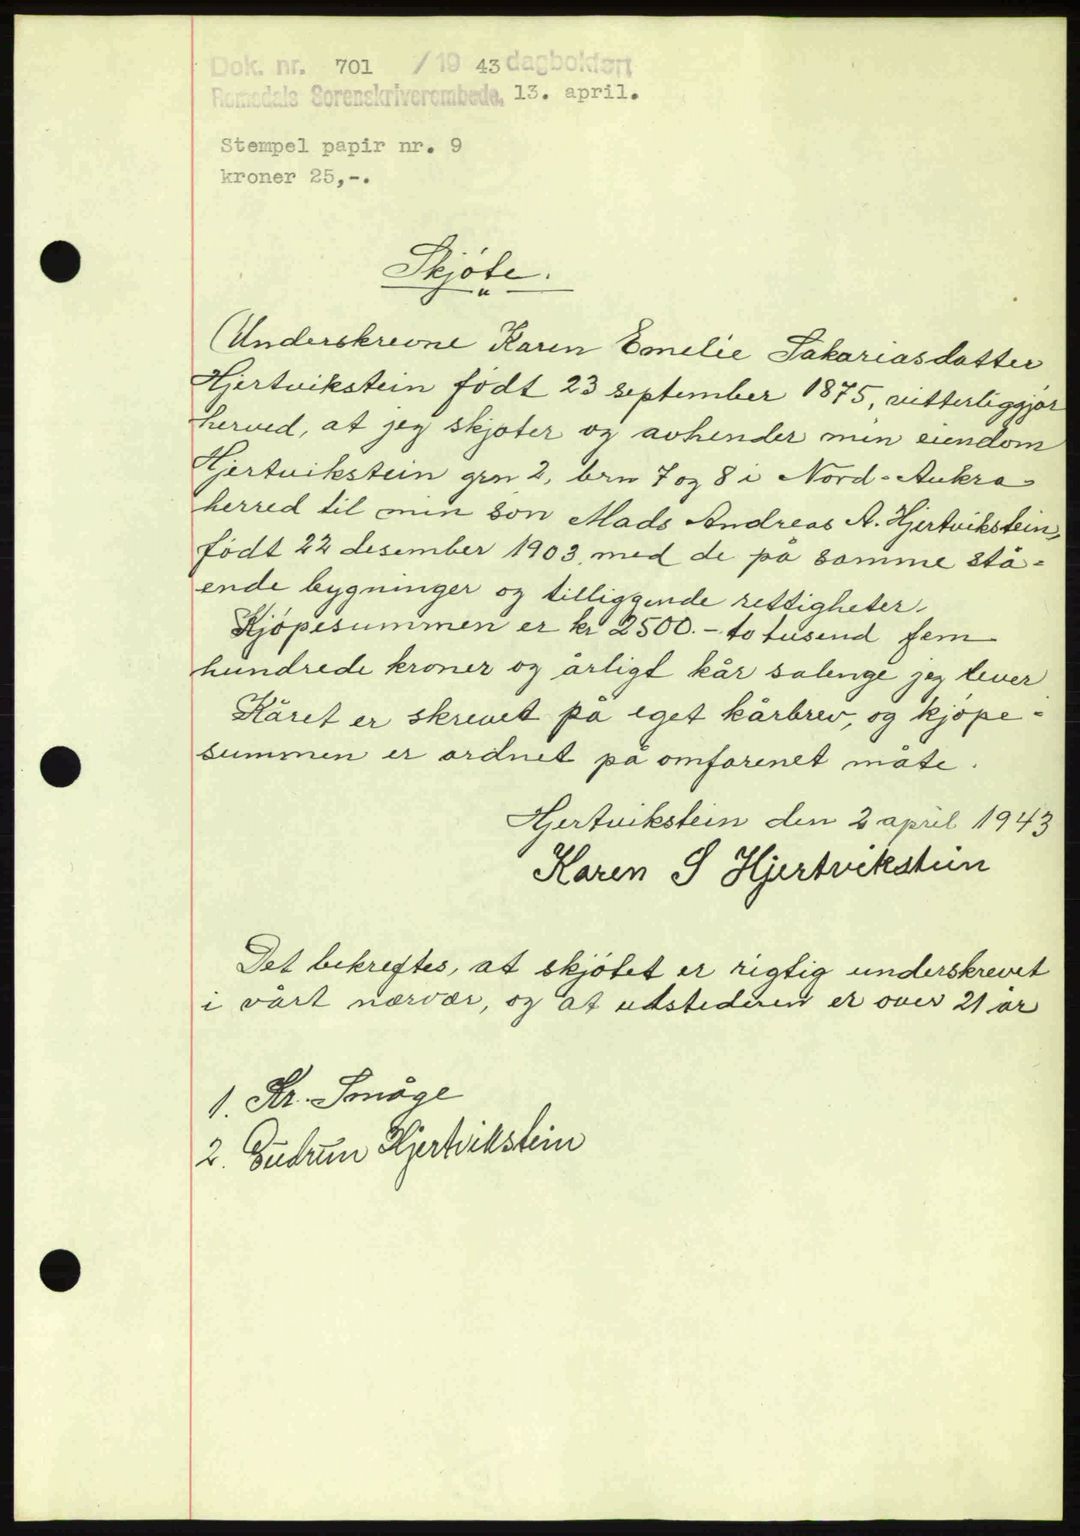 Dok. nr. 701 / 19 43 dagbokført
Romsdals Sorenskriverembede, 13. april.
Stempel papir nr. 9
kroner 25,-.
Skjøte.
Underskrevne Karen Emelie Sakariasdatter
Hjertvikstein født 23 september 1875, vitterliggjør
herved, at jeg skjøter og avhender min eiendom
Hjertvikstein grn 2, brn 7 og 8 i Nord-Aukra
herred til min søn Mads Andreas A. Hjertvikstein,
født 22 desember 1903, med de på samme stå=
ende bygninger og tilliggende rettigheter.
Kjøpesummen er kr 2500.- to tusend fem
hundrede kroner og årligt kår salenge jeg lever
Kåret er skrevet på eget kårbrev, og kjøpe=
summen er ordnet på omforenet måte.
Hjertvikstein den 2 april 1943
Karen S Hjertvikstein
Det bekreftes, at skjøtet er rigtig underskrevet
i vårt nærvær, og at udstederen er over 21 år
1. Kr. Småge
2. Gudrun Hjertvikstein